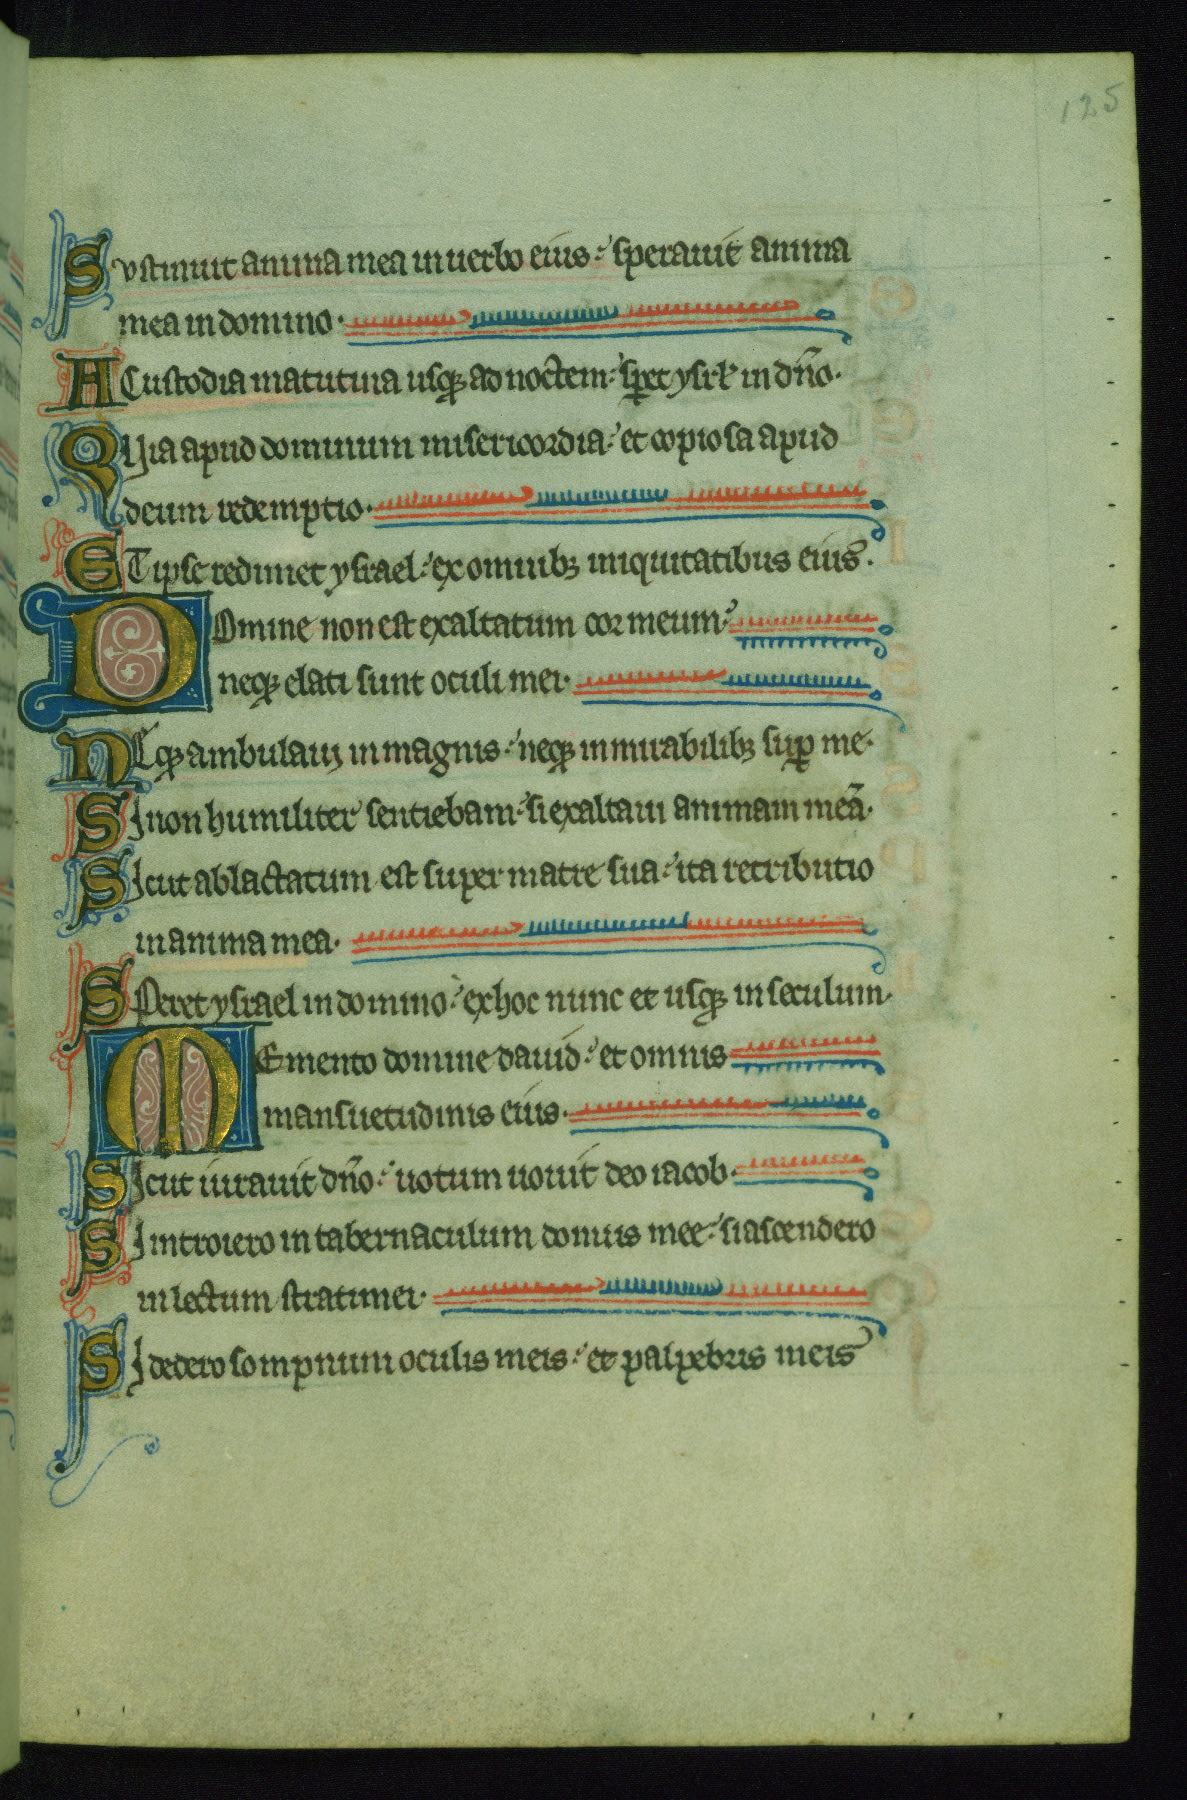 125
Sustinuit anima mea in uerbo eius : sperauit anima
mea in domino ·
A Custodia matutina usq; ad noctem : sꝑet ysrl' in dño ·
Quia apud dominum misericordia : et copiosa apud
deum redemptio ·
ET ipse redimet ysrael : ex omnib; iniquitatibus eius .
DOmine non est exaltatum cor meum :
neq; elati sunt oculi mei ·
NEq; ambulaui in magnis : neq; in mirabilib; suꝑ me ·
SI non humiliter sentiebam : si exaltaui animam meã ·
SIcut ablactatum est super matre sua : ita retributio
in anima mea ·
SPeret ysrael in domino : ex hoc nunc et usq; in seculum ·
MEmento domine dauid : et omnis
mansuetudinis eius ·
SIcut iurauit dño : uotum uouit deo iacob ·
SI introiero in tabernaculum domus mee : si ascendero
in lectum strati mei ·
SI dedero sompnum oculis meis : et palpebris meis